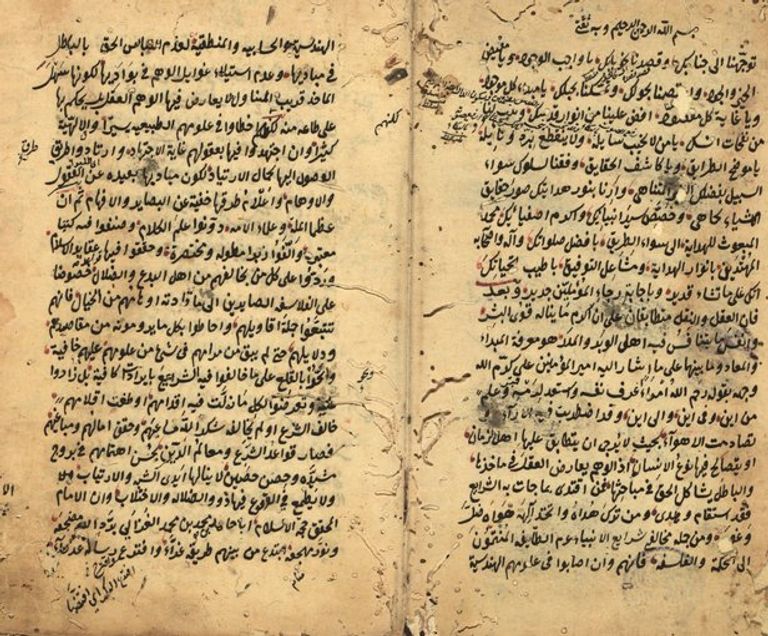 بسم الله الرحمن الرحيم وبه ثقتي
توجهنا الى جنابك وقصدنا نحو بابك يا واجب الوجود ويا مفيض
الخير والجود واعتصمنا بحولك وتمسكنا بحبلك يا مبدء كل موجود
ويا غاية كل مقصود افض علينا من انوار قدسك
من نفحات انسك يا من لا يخيب سائله ولا ينقطع بره ونائله
يا موضح الطرايق ويا كاشف الحقايق وفقنا لسلوك سواء
السبيل بفضلك الغير المتناهي وارنا بنور هدايتك صور حقايق
الاشياء كما هي وخصص سيد انبيائك واكرم اصفيائك محمد
المبعوث للهداية الى سواء الطريق بافضل صلواتك وآله واصحابه
المهتدين بانوار الهداية ومشاعل التوفيق باطيب تحياتك
انك على ما تشاء قدير وباجابة رجاء المؤملين جدير وبعد
فان العقل والنقل متطابقان على ان اكرم ما يناله قوى البشر
وانفس ما يتنافس فيه اهل الوبر والمدر هو معرفة المبداء
والمعاد وما بينهما على ما اشار اليه امير المؤمنين علي كرم الله
وجهه بقوله رحم الله امراء عرف نفسه واستعد لرمسه وعلم
من اين وفي اين والى اين وقد اضطربت فيه الاراء
تصادمت الاهواء بحيث لا يرجى ان يتطابق عليها اهل زمان
او يتصالح فيها نوع الانسان اذ الوهم يعارض العقل في مآخذها
والباطل يشاكل الحق في مباحثها فمن اقتدى بما جات به الشرايع
فقد استقام وهدى ومن ترك هداه واتخذ الهه هواه ضل
وغوى ومن جملة مخالفي شرايع الانبياء هم الطايفة المنتمون
الى الحكمة والفلسفة فانهم وان اصابوا في علومهم الهندسية
الهندسية والحسابية والمنطقية لعدم التباس الحق بالباطل
في مباديها وعدم استيلاء غوايل الوهم في بواديها لكونها سهل
الماخذ قريب المنال لا يعارض فيها الوهم العقل بل يحكم بها
على طاعة منه لكنهم اخطاوا في علومهم الطبيعية يسيرا والالهية
كثيرا وان اجتهدوا فيها بعقولهم غاية الاجتهاد وارتادوا طرق
الوصول اليها كمال الارتياد لكون مباديها بعيدة عن العقول
والاوهام واعلام طرقها خفية عن البصاير والافهام ثم ان
عظماء الملة وعلماء الامة دونوا علم الكلام وصنفوا فيه كتبا
معتبرة والفوا زبرا مطولة ومختصرة وحققوا فيها عقايد الاسلام
وردوا على كل من يخالفهم من اهل البدع والضلال خصوصا
على الفلاسفة الصايرين الى ما زادته اوهامهم من الخيال فانهم
تتبعوا جملة اقاويلهم واحاطوا بكل ما يرومونه من مقاصدهم
ودلايلهم حتى لم يبق من مرامهم في شئ من علومهم عليهم خافية
والحوا بالقلع على ما خالفوا فيه الشرايع بايرادات كافية بل زادوا
عليه وتعرضوا لكل ما زلت فيه اقدامهم وطغت اقلامهم
خالف الشرع او لم يخالف شكر الله مساعيهم وحقق امالهم ومباغيهم
فصار قواعد الشرع ومعالم الدين بحسن اهتمامهم في بروج
مشيدة وحصن حصين لا ينالها ايدي الشبه والارتياب
ولا يطمع في الوقوع فيها ذوو الضلالة والاختلاب وان الامام
المحقق حجة الاسلام ابا حامد محمد بن محمد الغزالي برد الله مضجعه
ونور مهجعه ابتدع من بينهم طريقة غراء واخترع رسالة
لكنهم
طرق